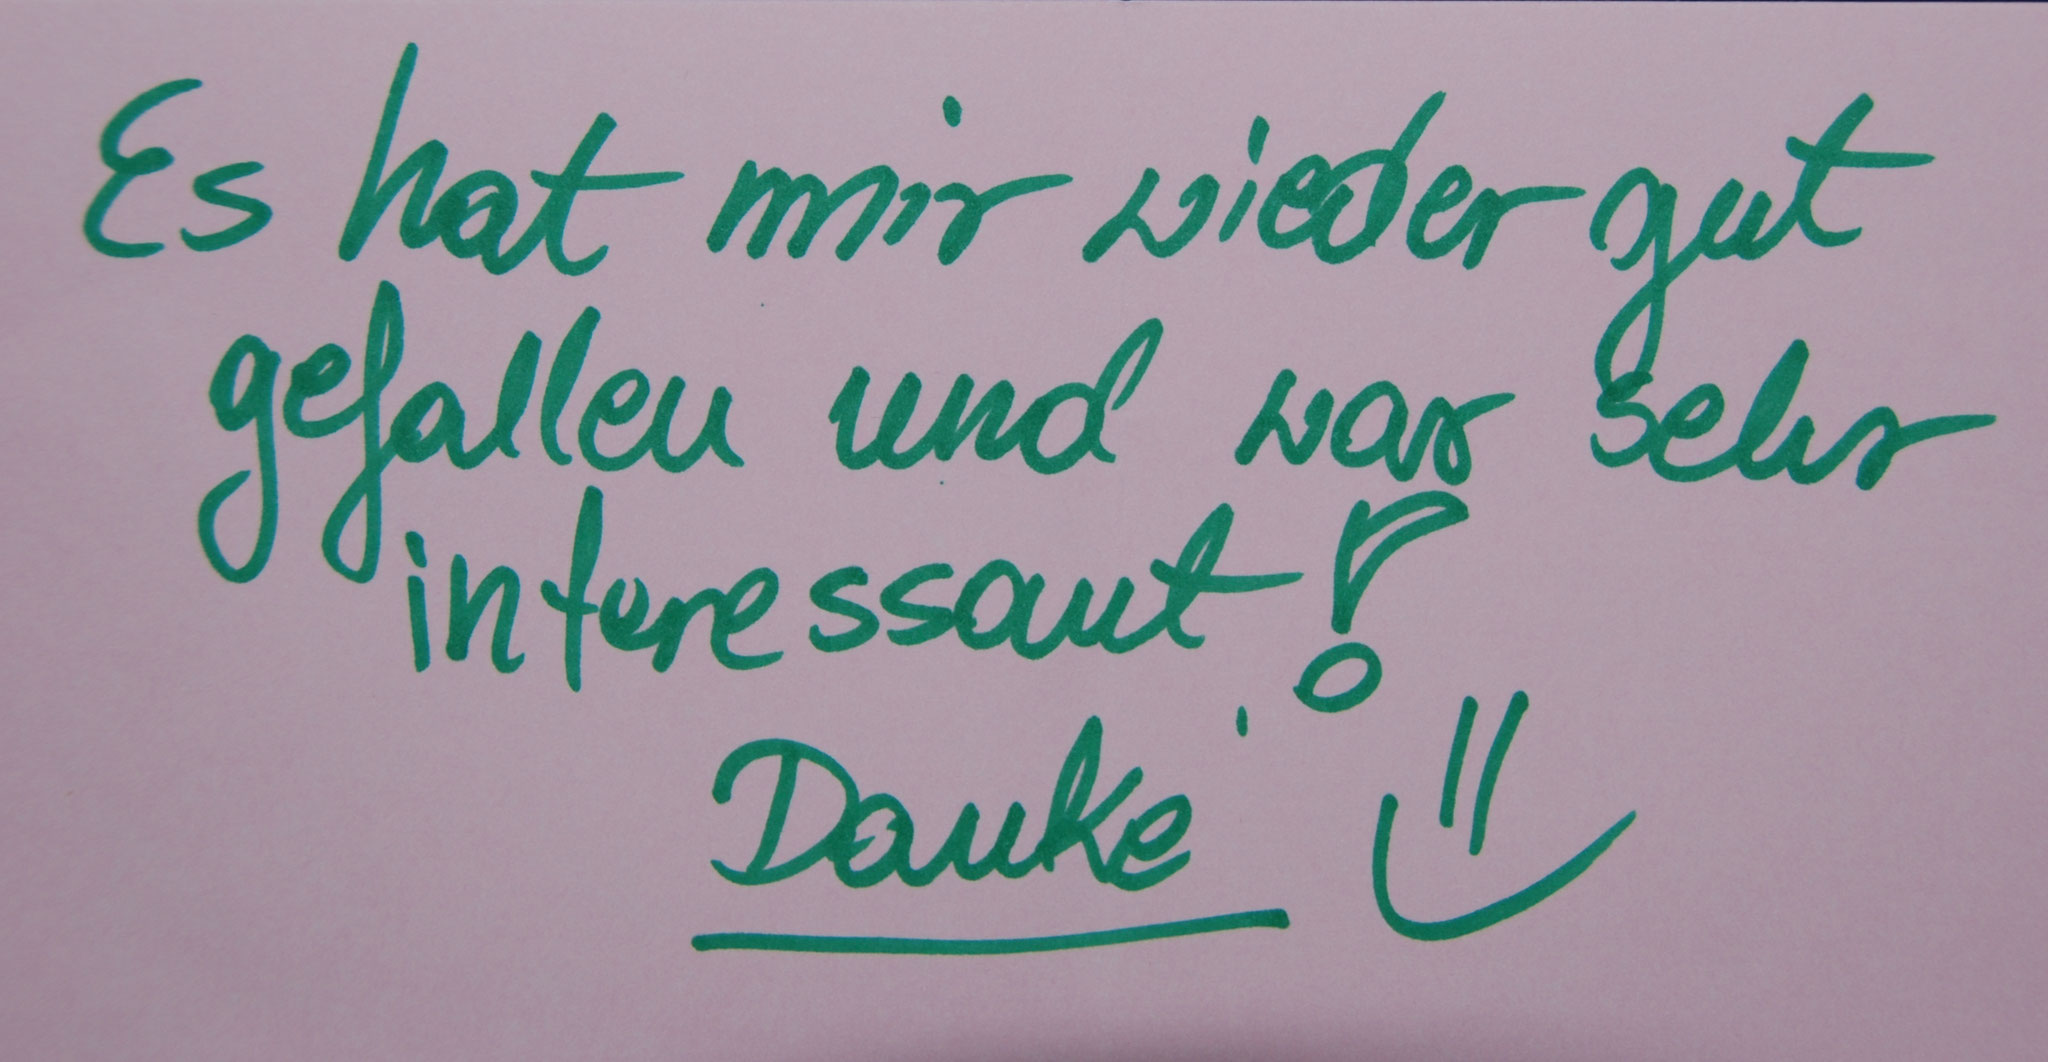 Es hat mir wieder gut
gefallen und war sehr
interessant!
Danke